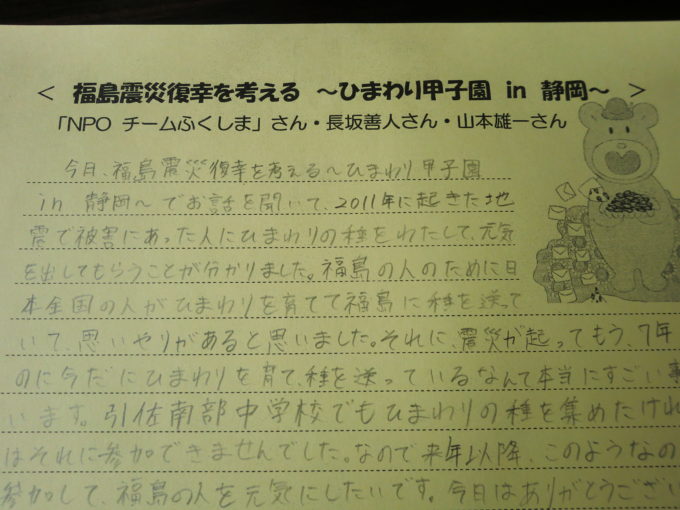 < 福島震災復幸を考える ～ひまわり甲子園 in 静岡～ >
「NPO チームふくしま」さん・長坂善人さん・山本雄一さん
今日、福島震災復幸を考える～ひまわり甲子園
in 静岡～でお話を聞いて、2011年に起きた地
震で被害にあった人にひまわりの種をわたして、元気
を出してもらうことが分かりました。福島の人のために日
本全国の人がひまわりを育てて福島に種を送って
いて、思いやりがあると思いました。それに、震災が起ってもう、7年
のに今だにひまわりを育て、種を送っているなんて本当にすごい事
います。引佐南部中学校でもひまわりの種を集めたけれ
はそれに参加できませんでした。なので来年以降、このようなの
参加して、福島の人を元気にしたいです。今日はありがとうござい